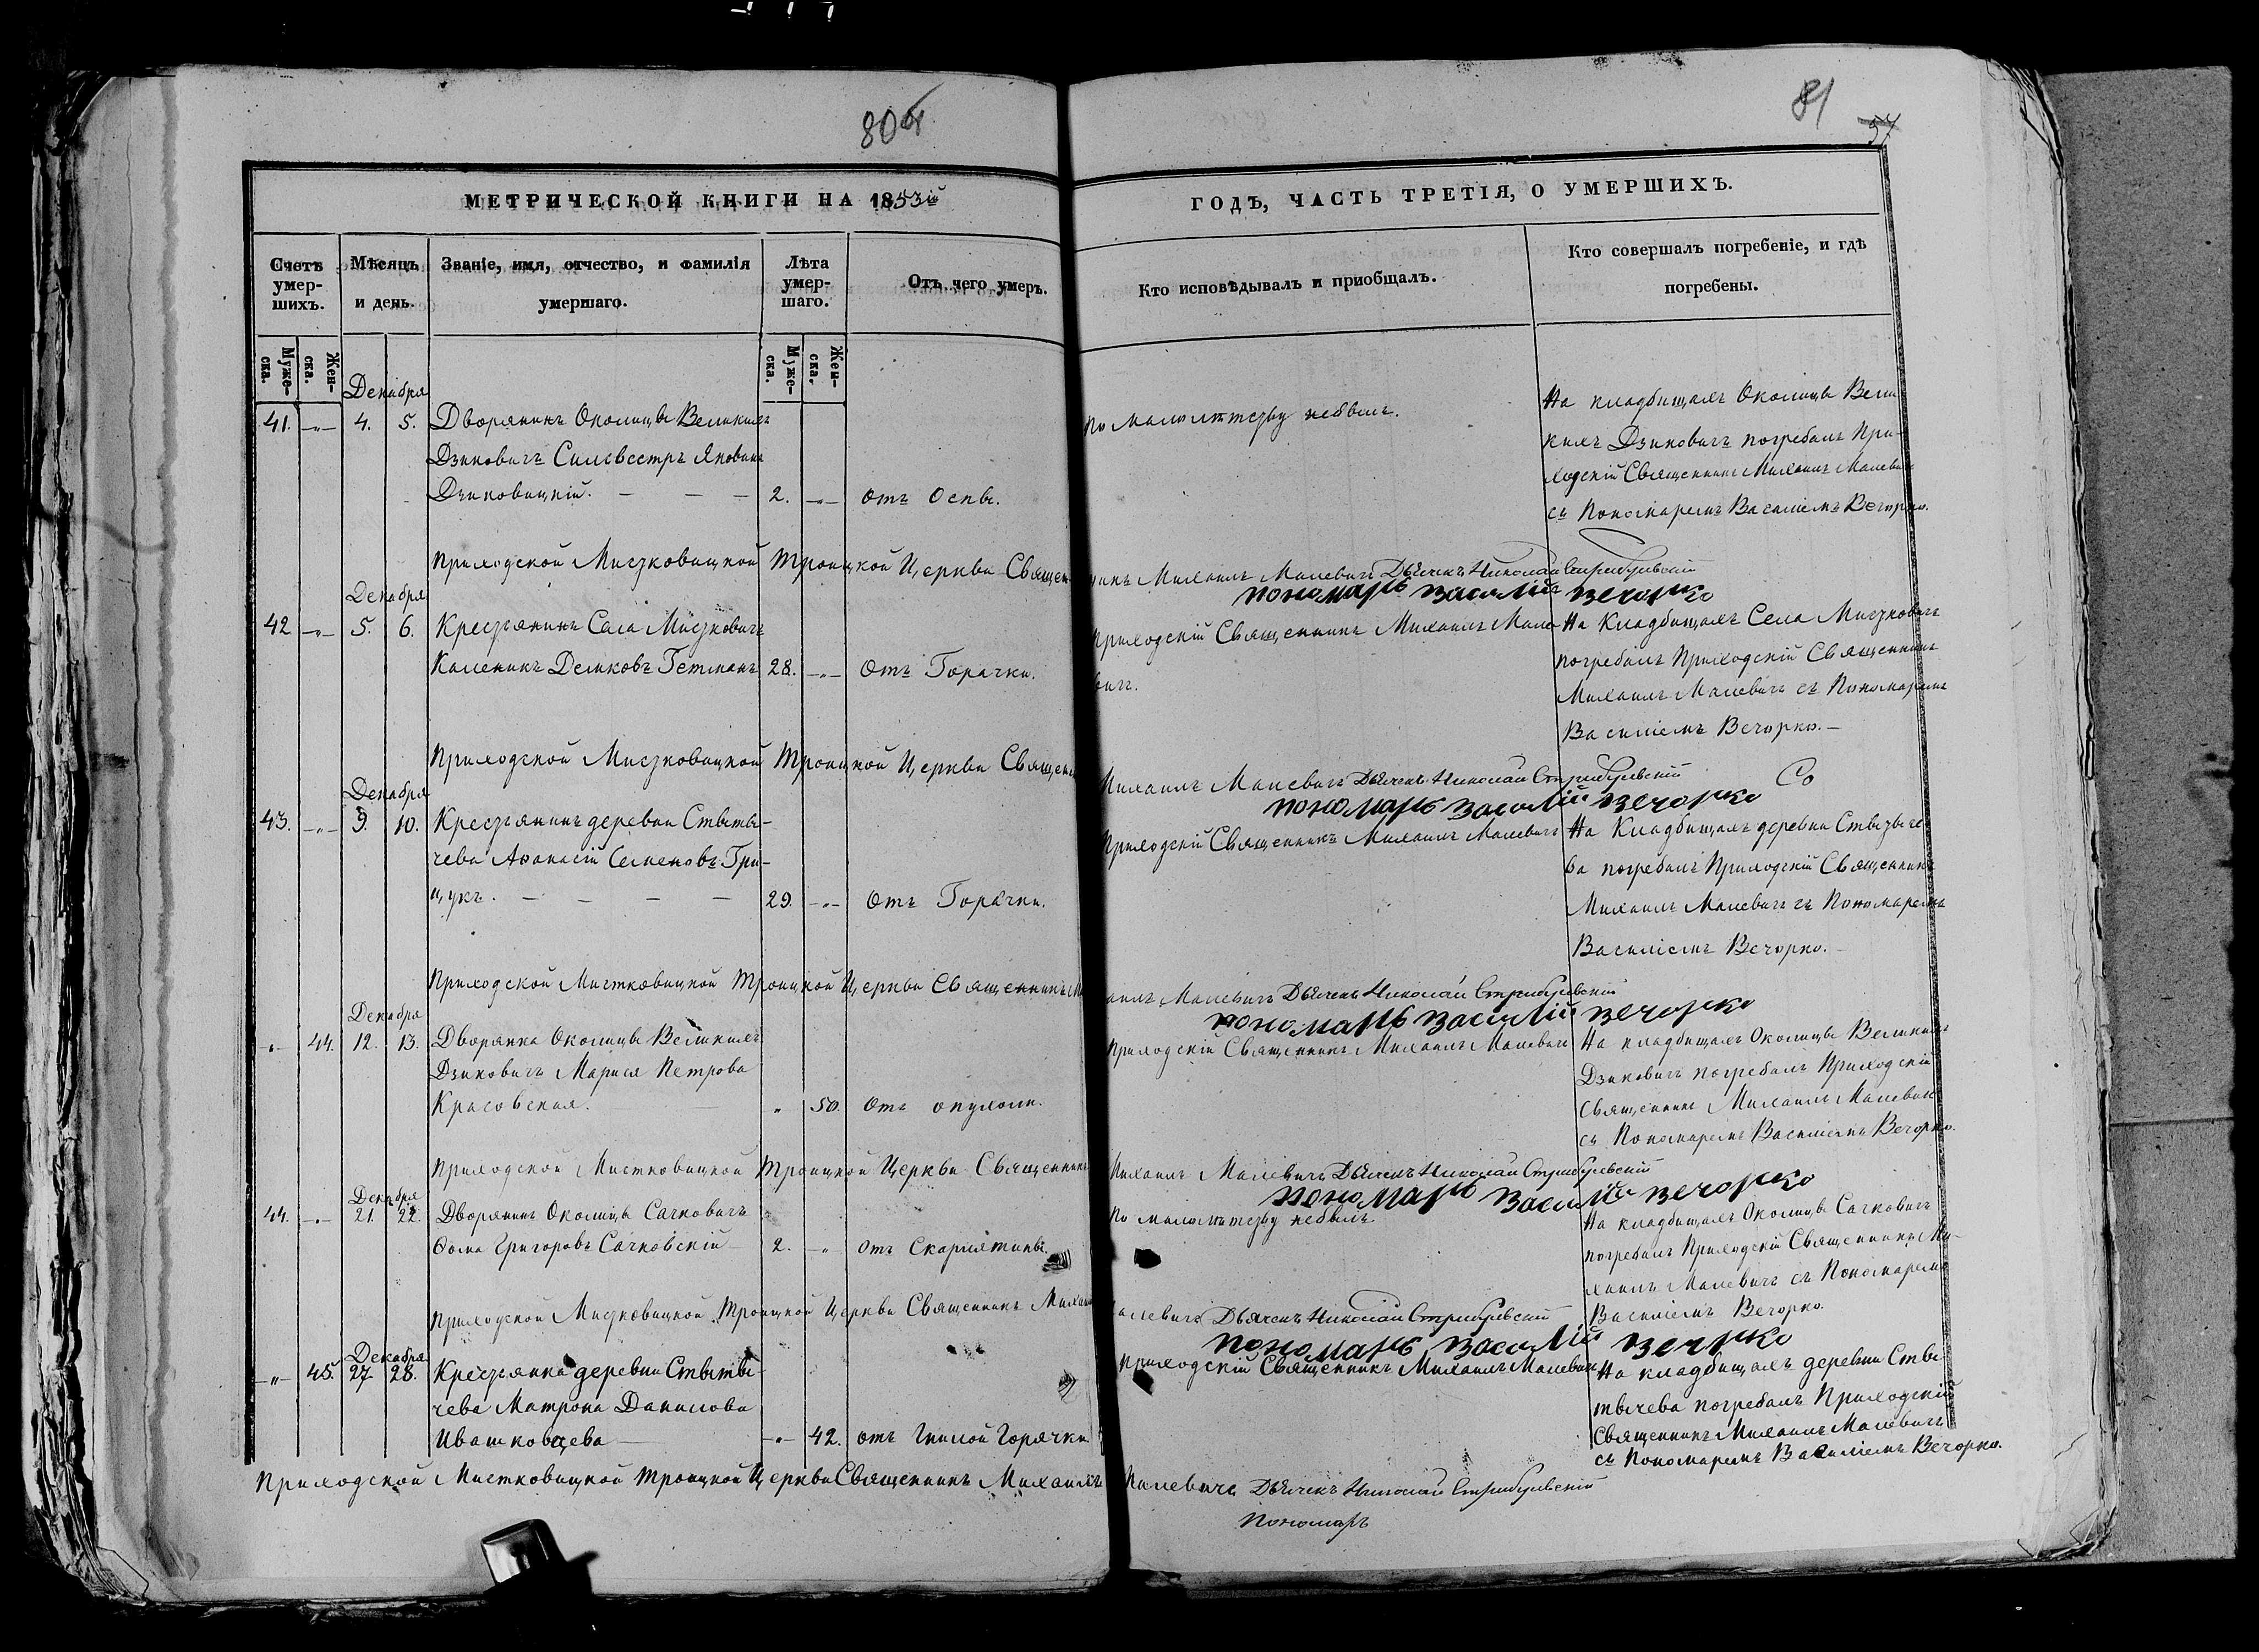 80 об
81
57
МЕТРИЧЕСКОЙ КНИГИ НА 1853й
ГОДЪ, ЧАСТЬ ТРЕТІЯ, О УМЕРШИХЪ.
Счетъ умер-шихъ.
Мѣсяцъ и день.
Званіе, имя, отчество, и фамилія умершаго.
Лѣта умер-шаго.
Отъ чего умеръ.
Кто исповѣдывалъ и приобщалъ.
Кто совершалъ погребеніе, и гдѣ погребены.
Муже-ска. Жен-ска. Муже-ска. Жен-ска.
Декабря
41. -"- 4. 5. Дворянинъ Околицы Великихъ
Дзиковичъ Сильвестръ Яковина
Дзиковицкій. — — — 2. -"- Отъ Оспы.
по малолѣтству небылъ.
На кладбищахъ Околицы Вели
кихъ Дзиковичъ погребалъ При-
ходскій Священникъ Михаилъ Малевичъ
съ Пономаремъ Василіемъ Вечорко.
Приходской Мистковицкой Троицкой Церкви Священникъ Михаилъ Малевичъ Дьячекъ Николай Стрибульскій
пономарь Василій Вечорко
Декабря
42 -"- 5. 6. Крестянинъ Села Мистковичъ
Каленикъ Демковъ Гетманъ 28. -"- Отъ Горачки.
Приходскій Священникъ Михаилъ Мале
вичъ.
На Кладбищахъ Села Мистковичъ
погребалъ Приходскій Священникъ
Михаилъ Малевичъ съ Пономаремъ
Василіемъ Вечорко. —
Приходской Мистковицкой Троицкой Церкви Священ
Михаилъ Малевичъ Дьячекъ Николай Стрибульскій Со
пономарь Василій Вечорко
Декабря
43. -"- 9. 10. Крестянинъ деревни Ставты-
чева Афанасій Семеновъ Гри-
щукъ. — — — — 29. -"- Отъ Горачки.
Приходскій Священникъ Михаилъ Малевичъ
На Кладбищахъ деревни
ва погребалъ Приходскій Священникъ
Михаилъ Малевичъ съ Пономаремъ
Василіемъ Вечорко. —
Приходской Мистковицкой Троицкой Церкви Священникъ Михаилъ Малевичъ Дьячекъ Николай Стрибульскій
пономарь Василій Вечорко
Декабря
" 44. 12. 13. Дворянка Околицы Великихъ
Дзиковичъ Марися Петрова
Красовская. — " 50. Отъ опухоли.
Приходскій Священникъ Михаилъ Малевичъ
На кладбищахъ Околицы Великихъ
Дзиковичъ погребалъ Приходскій
Священникъ Михаилъ Малевичъ
съ Пономаремъ Василіемъ Вечорко.
Приходской Мистковицкой Троицкой Церкви Священникъ Михаилъ Малевичъ Дьячекъ Николай Стрибульскій
пономарь Василій Вечорко
Декабря
44. -"- 21. 22. Дворянинъ Околицы Сачковичъ
Фома Григоровъ Сачковскій — 2. -"- Отъ Скарлятины.
По малолѣтству небылъ
На кладбищахъ Околицы Сачковичъ
погребалъ Приходскій Священникъ Ми-
хаилъ Малевичъ съ Пономаремъ
Василіемъ Вечорко.
Приходской Мистковицкой Троицкой Церкви Священникъ Михаилъ Малевичъ Дьячекъ Николай Стрибульскій
пономарь Василій Вечорко
Декабря
-"- 45. 27. 28. Крестянка деревни
чева Матрона Данилова
Ивашковцева — -"- 42. отъ Гнилой Горячки
Приходскій Священникъ Михаилъ Малевичъ
На кладбищахъ деревни
тычева погребалъ Приходскій
Священникъ Михаилъ Малевичъ
съ Пономаремъ Василіемъ Вечорко.
Приходской Мистковицкой Троицкой Церкви Священникъ Михаилъ Малевичъ Дьячекъ Николай Стрибульскій
Пономарь